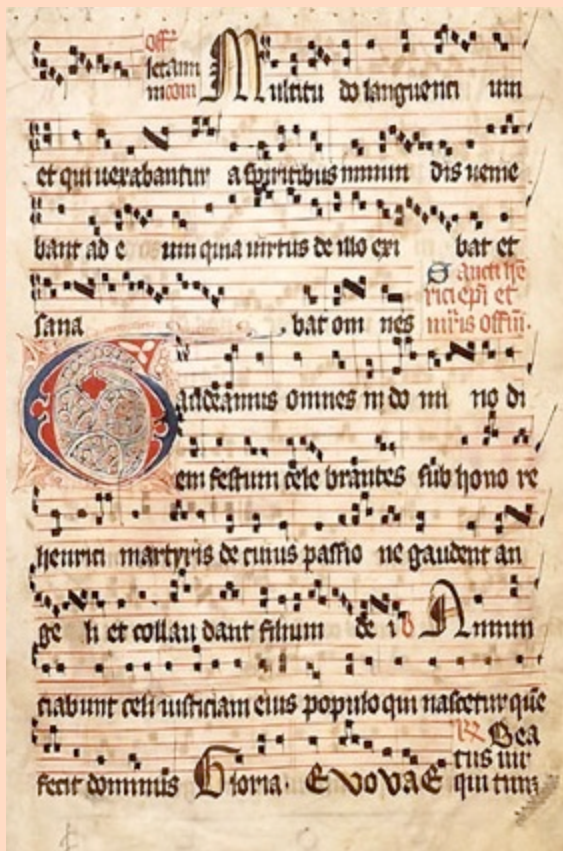 Off̄
letann
m com
Multitu do languenti um
et qui uexabantur a spiritibus inmun dis uenie
bant ad e um quia uirtus de illo exi bat et
sana bat om nes
Sancti he
rici epi et
mris offm.
Gaudeamus omnes in do mi no di
em festum cele brantes sub hono re
henrici martyris de cuius passio ne gaudent an
ge li et collau dant filium de i
Annun
ciabunt celi iusticiam eius populo qui nascetur que
fecit dominus Gloria. EVOVAE
Bea
tus uir
qui tim